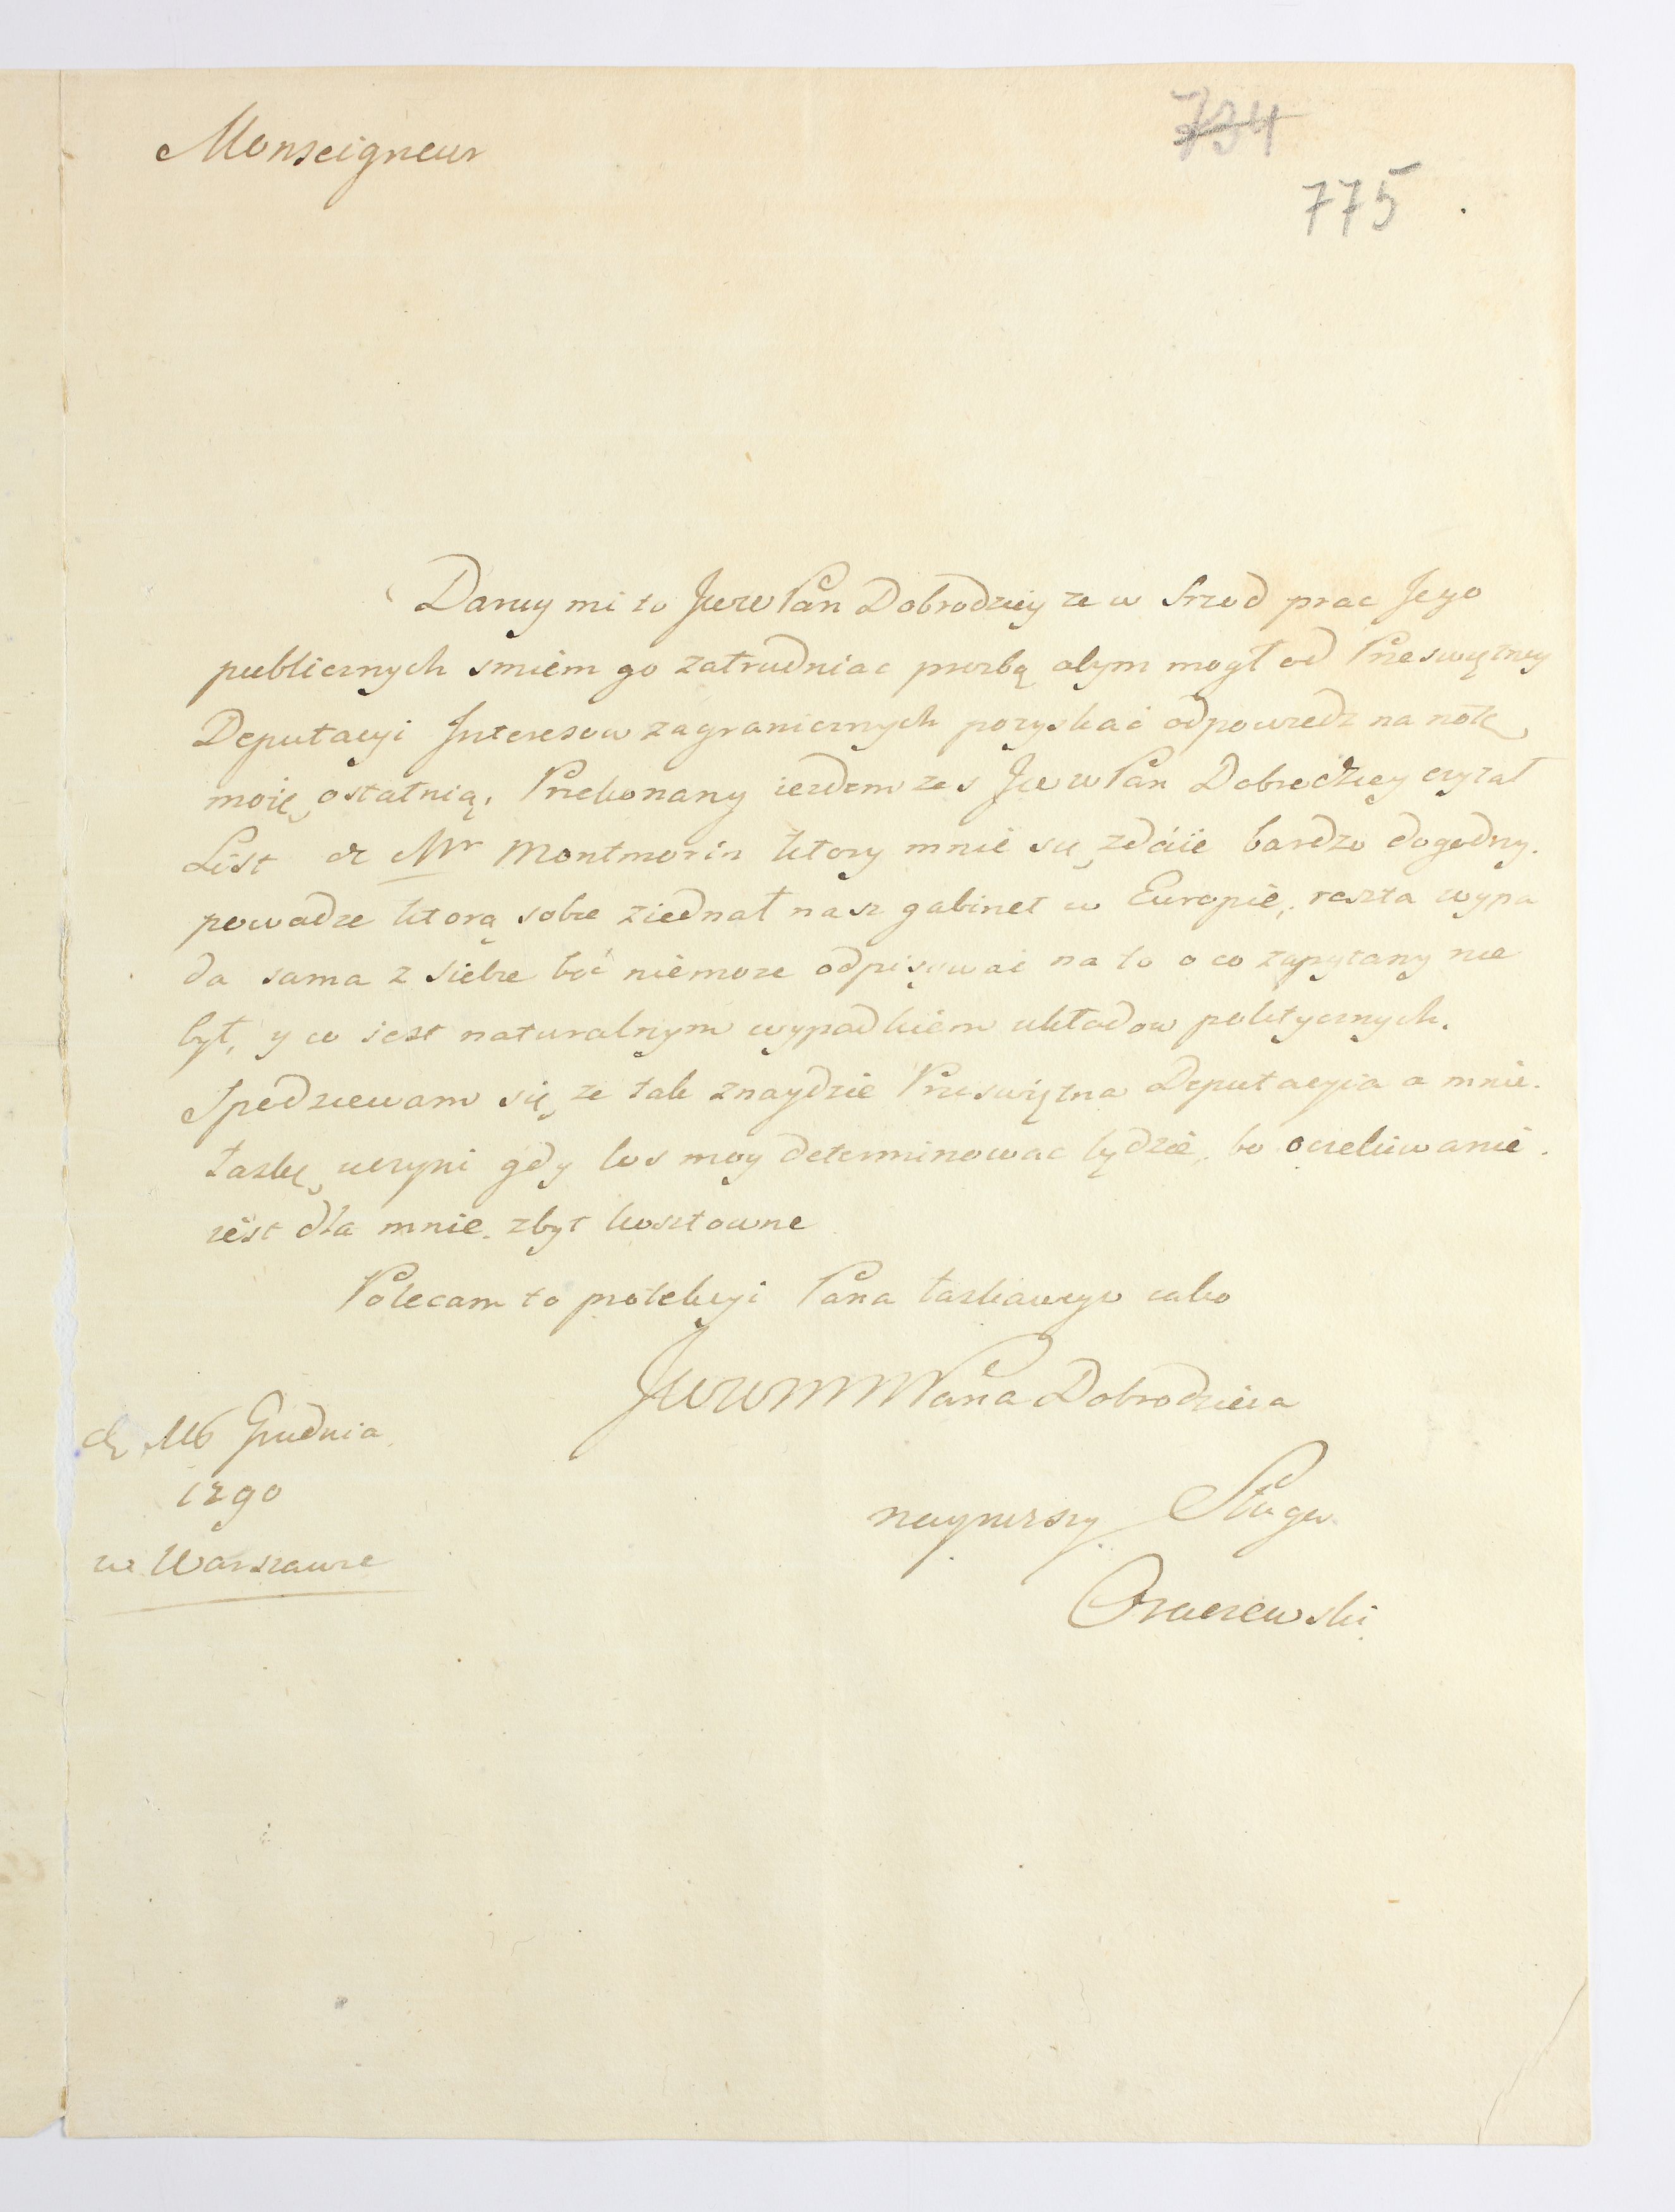 Monseigneur
734
775
Daruy mi to JWW Pan Dobrodziey ze w srzod prac Jego
publicznych smiem go zatrudniac prozbą abym mogł od Przeświętney
Deputacyi Interesow zagranicznych pozyskać odpowiedz na notę
moię ostatnią. Przekonany iestem zes JWW Pan Dobrodziey czytał
List de Mr Montmorin ktory mnie się zdaie bardzo dogodny.
powadze ktorą sobie ziednał nasz gabinet w Europie, reszta wypa
da sama z siebie boć niemoze odpisywać na to o co zapytany nie
był, y co iest naturalnym wypadkiem układow politycznych.
Spodziewam się ze tak znaydzie Przeświętna Deputacyia a mnie
łaskę uczyni gdy los moy determinowac będzie, bo oczekiwanie
iest dla mnie zbyt kosztowne
Polecam to protekcyi Pana łaskawego iako
JWWMM Pana Dobrodzieia
d 16 Grudnia
1790
w Warszawie
nayniszszy Sługa
Oraczewski